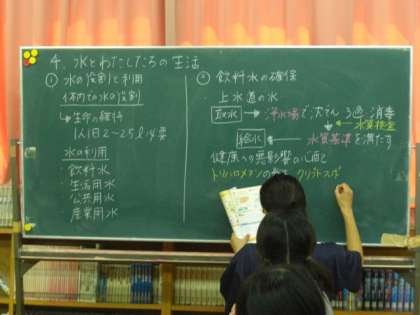 4. 水とわたしたちの生活
① 水の役割と利用
体内での水の役割
→生命の維持
1人1日2〜2.5L必要
水の利用
・飲料水
・生活用水
・公共用水
・産業用水
② 飲料水の確保
・上水道の水
取水 → 浄水場で沈でん ろ過 消毒
水質検査
給水 ← 水質基準を満たす
健康への悪影響の心配も
トリハロメタンの クリプトスポ